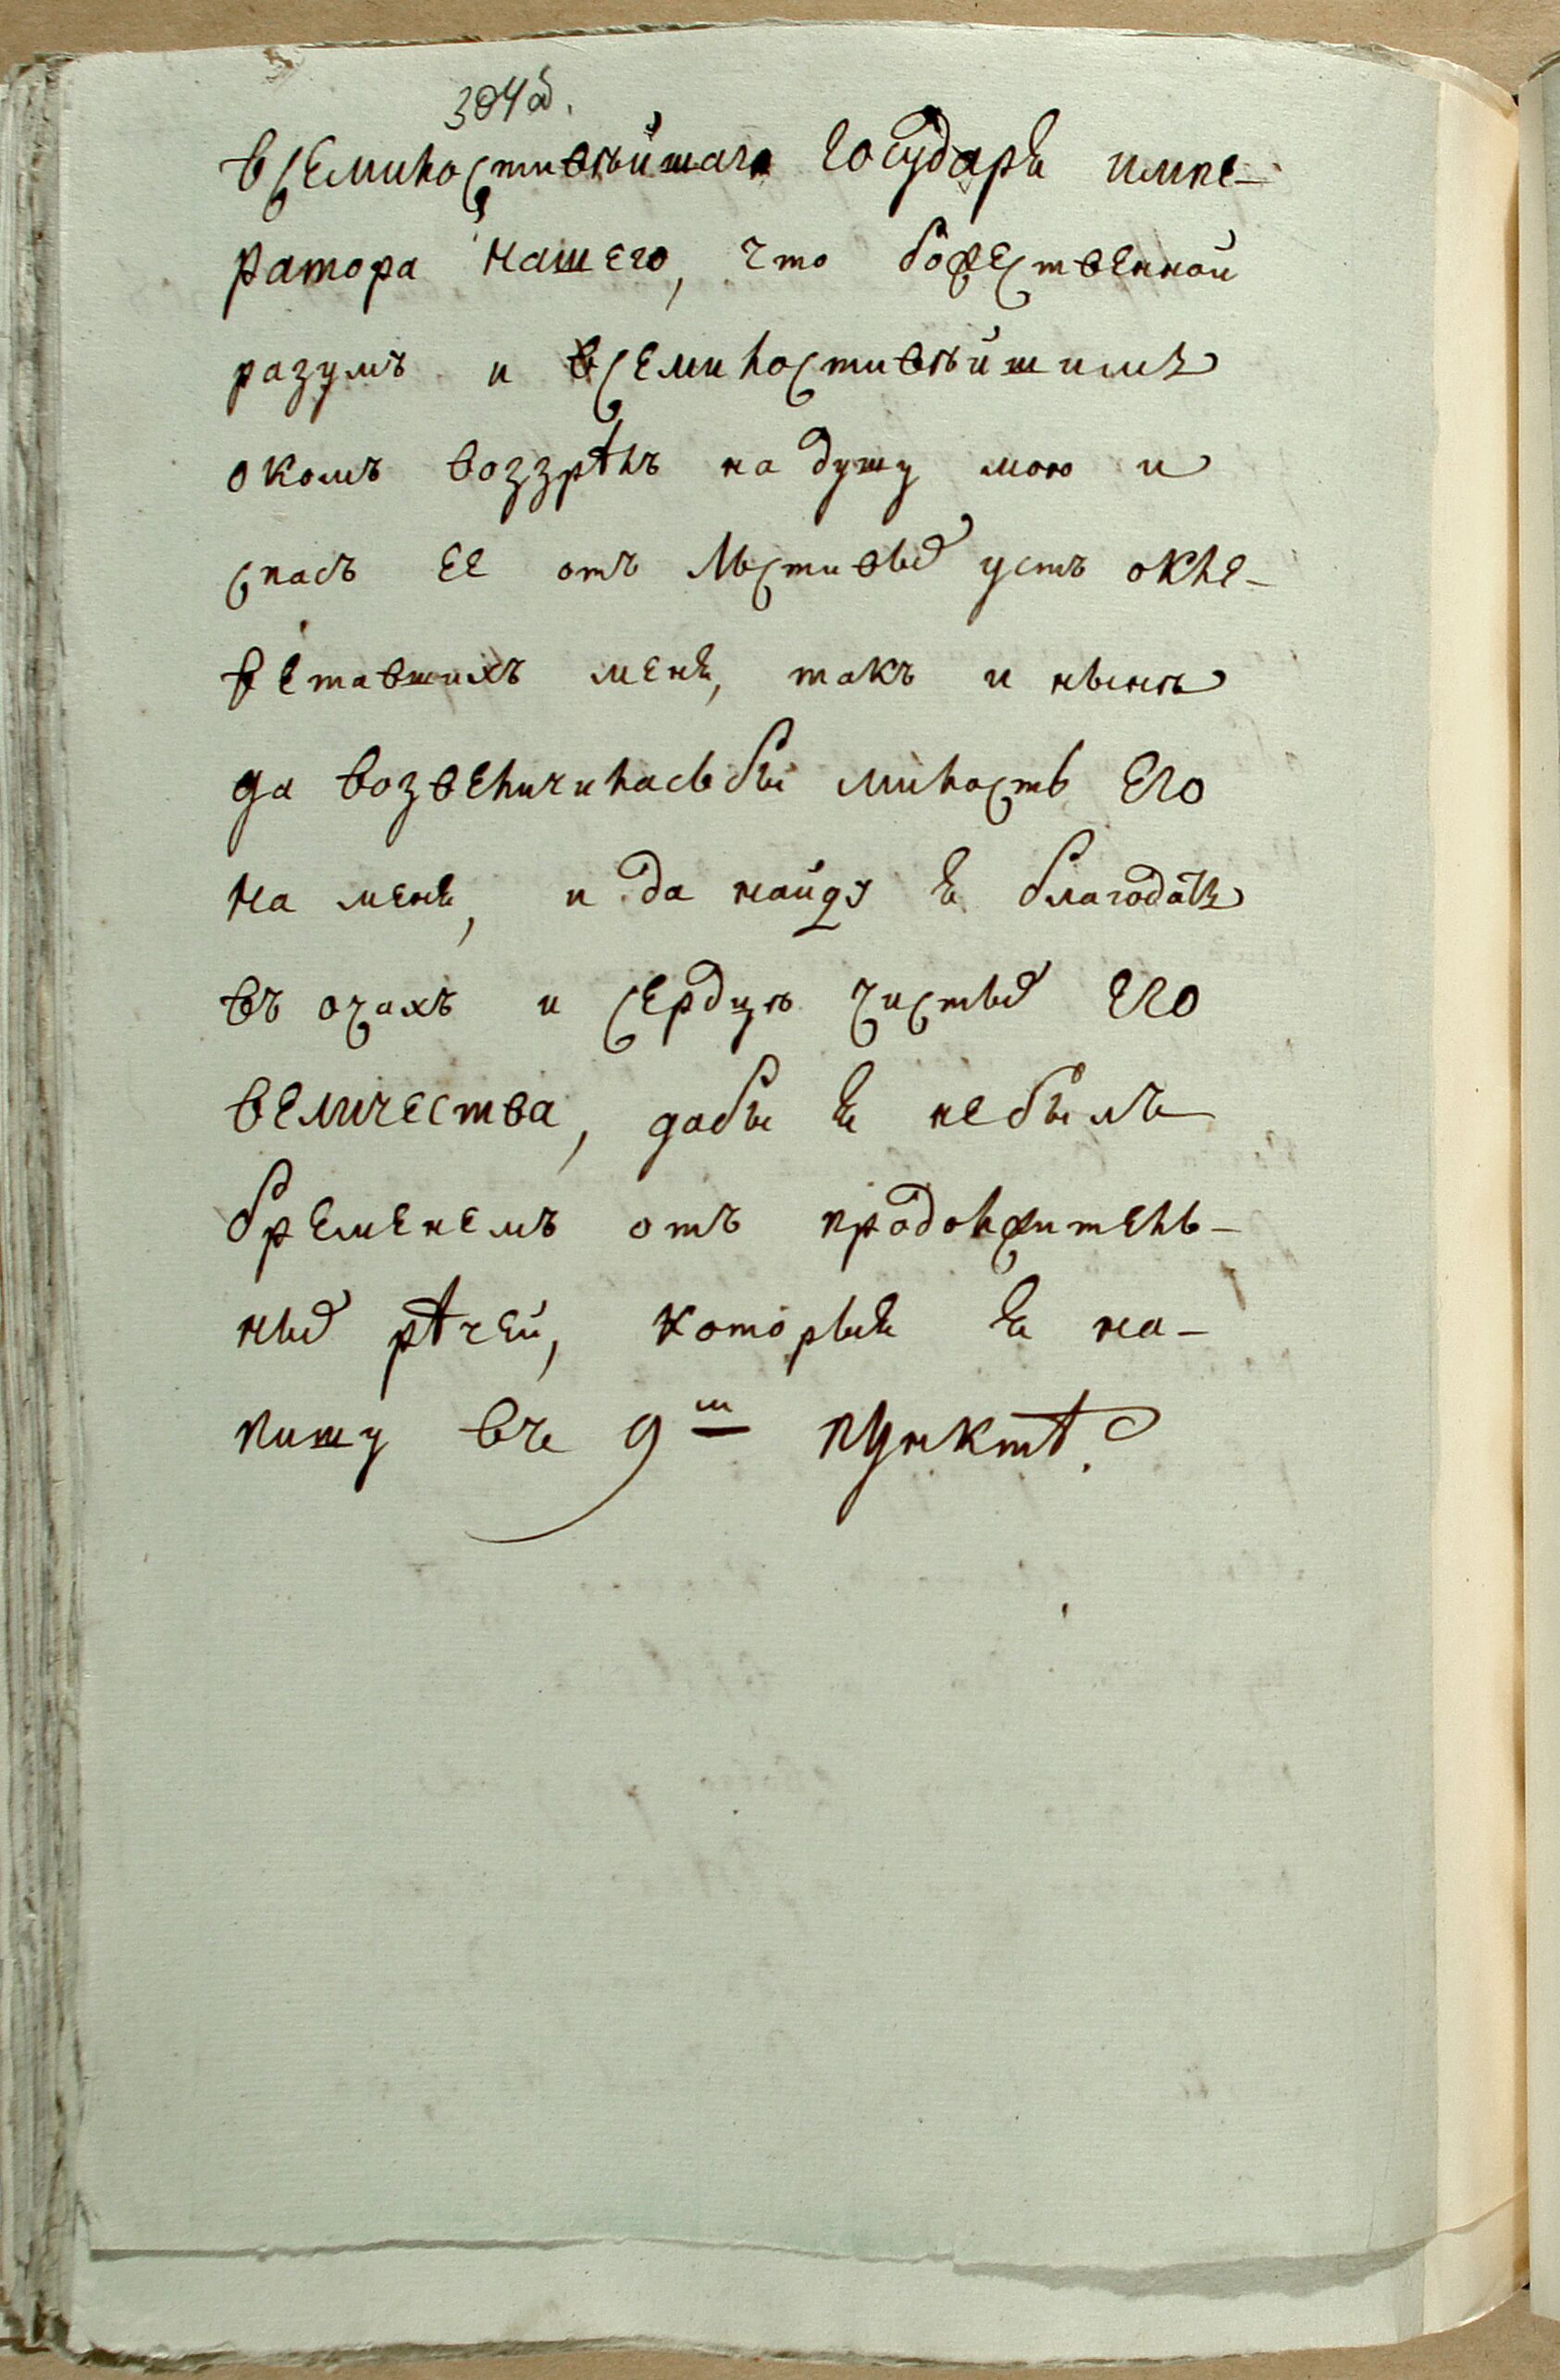 304об.
всемилостивѣйшаго Государя импе-
ратора нашего, что божественной
разумъ и всемилостивѣйшимъ
окомъ воззрѣлъ на душу мою и
спасъ ее отъ льстивыхъ устъ окле-
ветавшихъ меня, такъ и нынѣ
да возвеличиласьбы милость Его
на меня, и да найду я благодать
въ очахъ и сердцѣ чистыхъ Его
величества, дабы я небылъ
бременемъ отъ продолжитель-
ныхъ рѣчей, которыя я на-
пишу въ 9ᵐ пунктѣ.